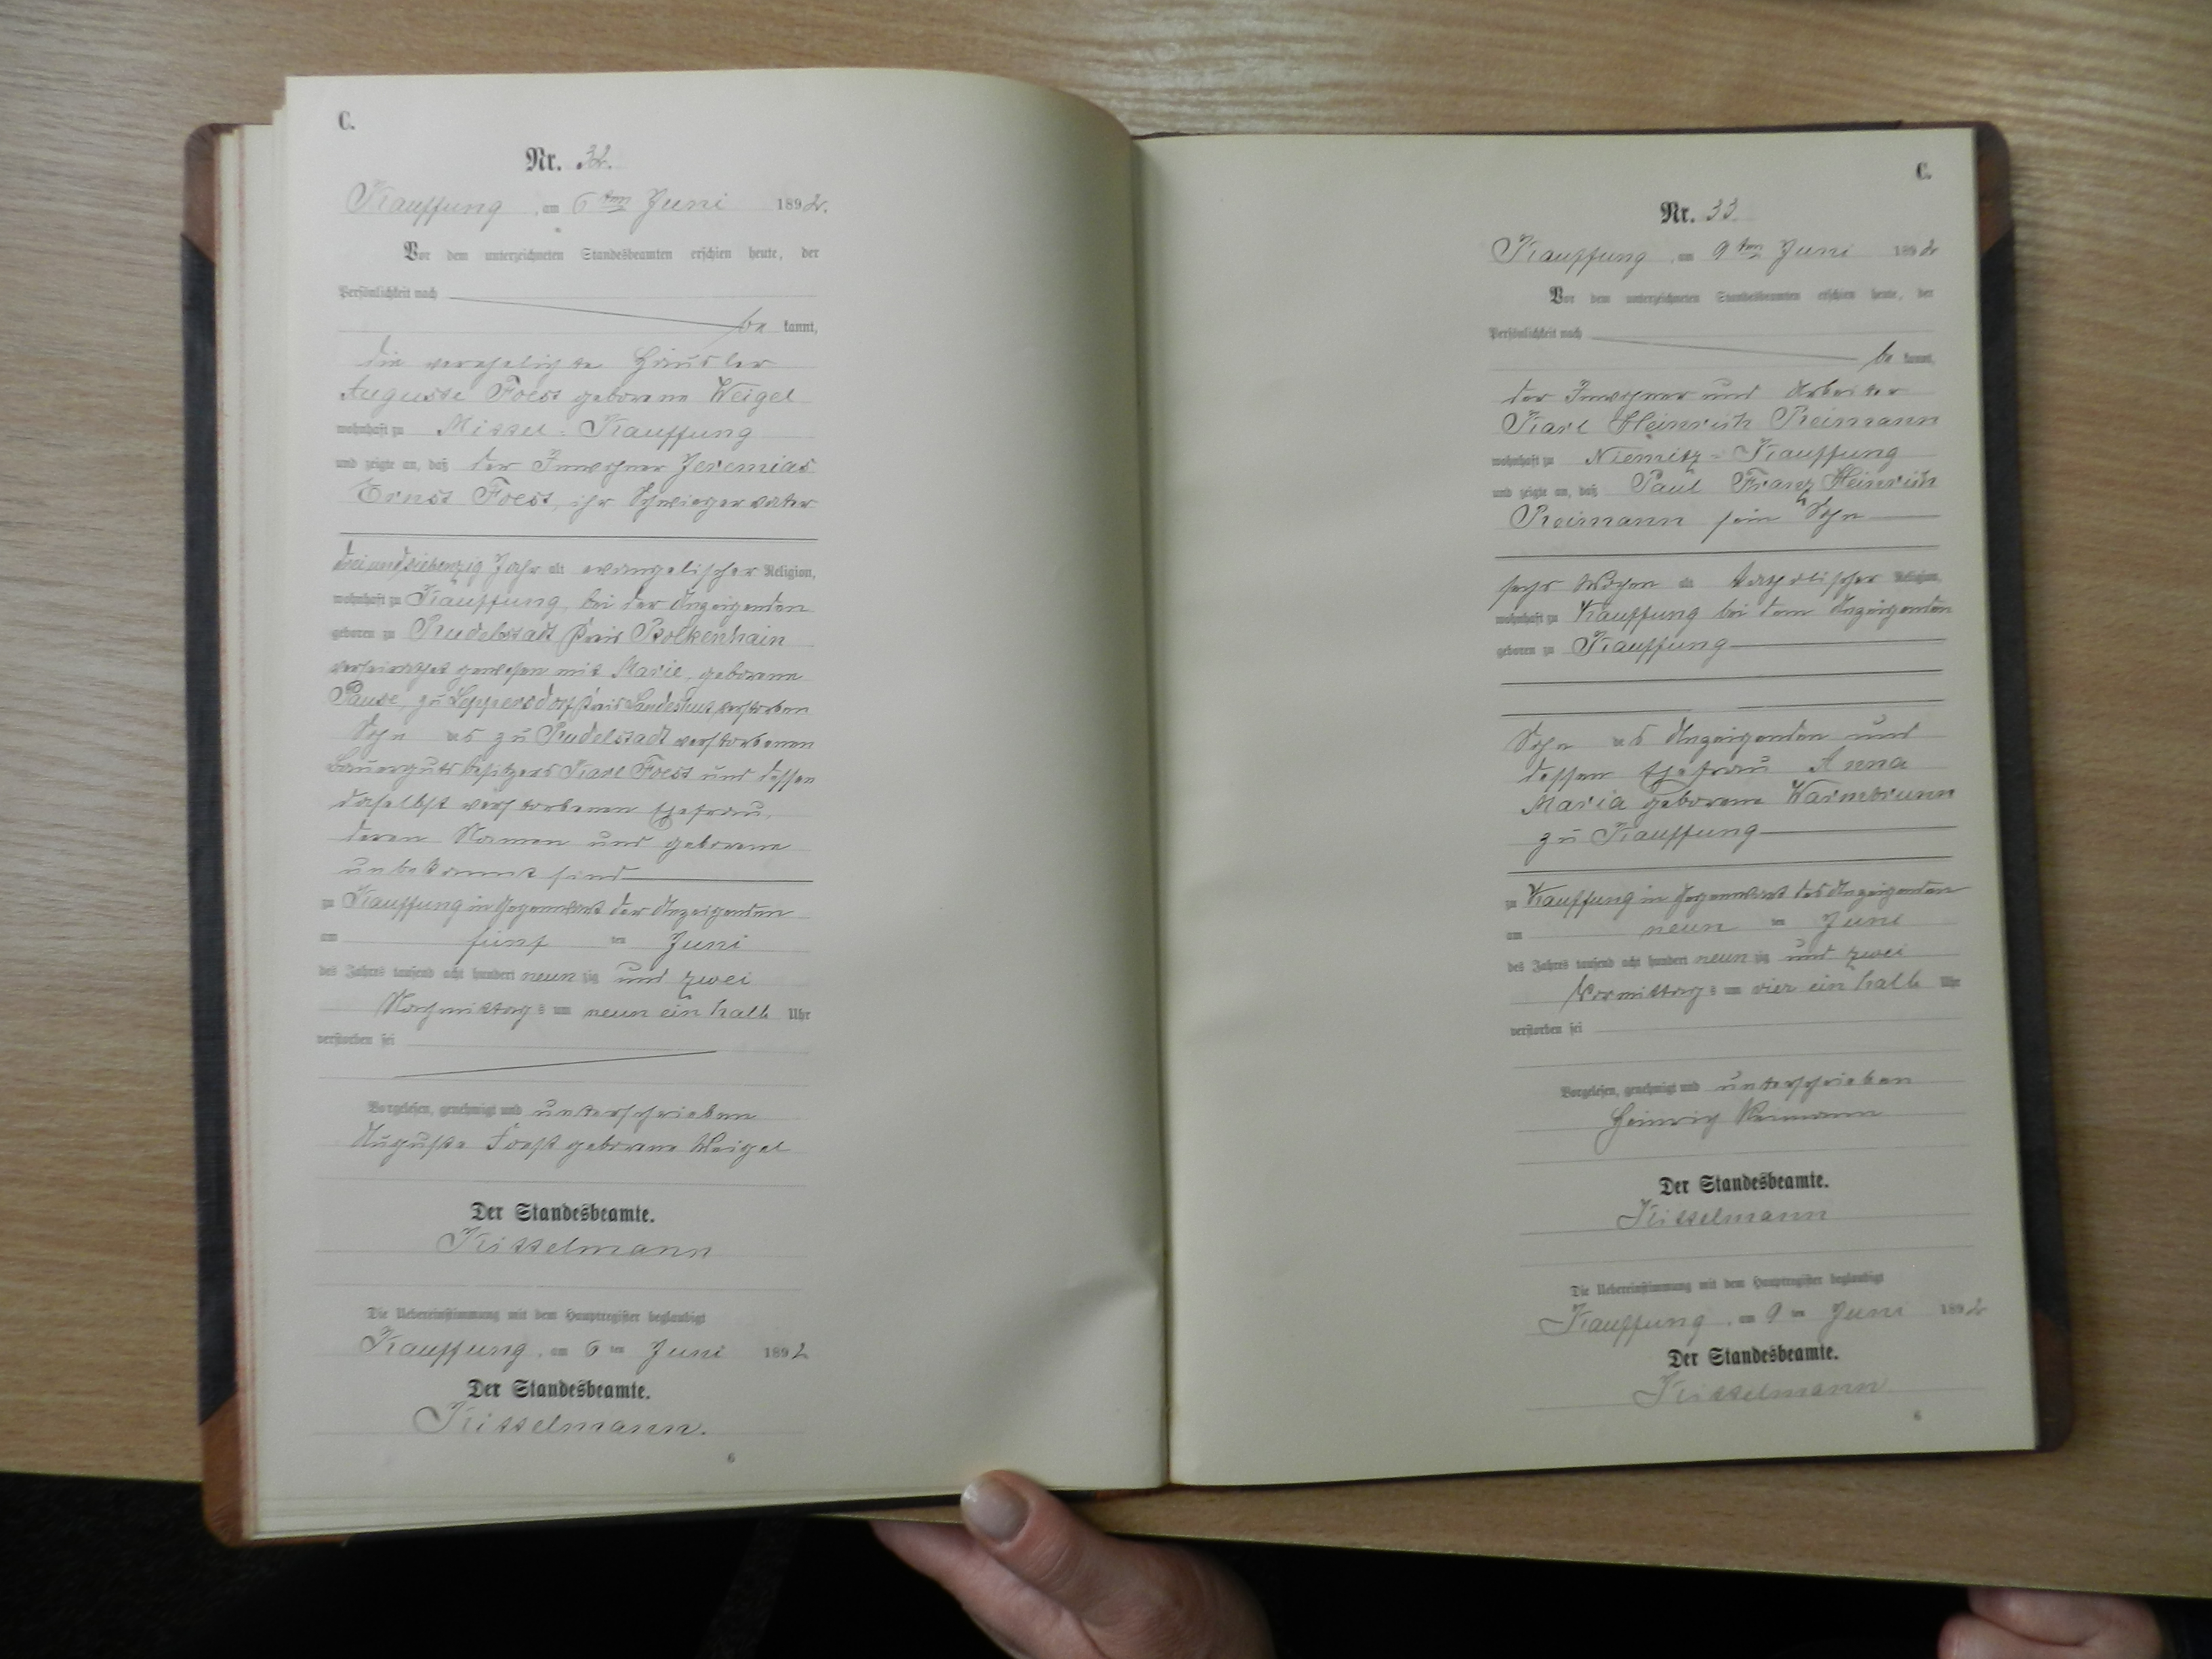 C.
Nr. 32.
Kauffung, am 6ten Juni 1892.
Vor dem unterzeichneten Standesbeamten erschien heute, der
Persönlichkeit nach
be kannt,
die verehelichte Häusler
Auguste Foest geborene Weigel
wohnhaft zu Mittel-Kauffung
und zeigte an, daß der Inwohner Jeremias
Ernst Foest, ihr Schwiegervater
dreiundsiebenzig Jahr alt evangelischer Religion,
wohnhaft zu Kauffung, bei der Anzeigenden
geboren zu Rudelstadt Kreis Bolkenhain
verheirathet gewesen mit Marie, geborene
Pause, zu Leppersdorf Kreis Landeshut verstorben
Sohn des zu Rudelstadt verstorbenen
Bauergutsbesitzers Karl Foest und dessen
daselbst verstorbenen Ehefrau,
deren Namen und geborene
unbekannt sind
zu Kauffung in Gegenwart der Anzeigenden
am fünf ten Juni
des Jahres tausend acht hundert neun zig und zwei
Nachmittag s um neun ein halb Uhr
verstorben sei
Vorgelesen, genehmigt und unterschrieben
Auguste Foest geborene Weigel
Der Standesbeamte.
Kittelmann
Die Uebereinstimmung mit dem Hauptregister beglaubigt
Kauffung, am 6 ten Juni 1892
Der Standesbeamte.
Kittelmann.
6
C.
Nr. 33.
Kauffung, am 9ten Juni 1892
Vor dem unterzeichneten Standesbeamten erschien heute, der
Persönlichkeit nach
be kannt,
der Inwohner und Arbeiter
Karl Heinrich Reimann
wohnhaft zu Niemitz-Kauffung
und zeigte an, daß Paul Franz Heinrich
Reimann sein Sohn
sechs Wochen alt katholischer Religion,
wohnhaft zu Kauffung bei dem Anzeigenden
geboren zu Kauffung
Sohn des Anzeigenden und
dessen Ehefrau Anna
Maria geborene Warnebrunn
zu Kauffung
zu Kauffung in Gegenwart des Anzeigenden
am neun ten Juni
des Jahres tausend acht hundert neun zig und zwei
Vormittag s um vier ein halb Uhr
verstorben sei
Vorgelesen, genehmigt und unterschrieben
Heinrich Reimann
Der Standesbeamte.
Kittelmann
Die Uebereinstimmung mit dem Hauptregister beglaubigt
Kauffung, am 9 ten Juni 1892
Der Standesbeamte.
Kittelmann
6